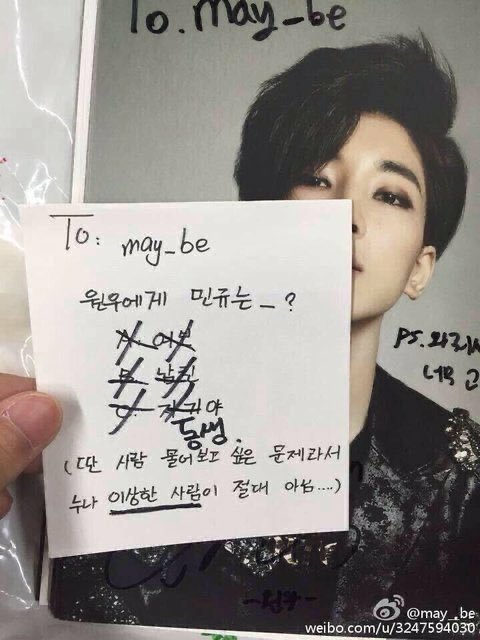 To. may_be
To: may_be
원우에게 민규는 _ ?
여보
남편
자기야
동생.
(딴 사람 물어보고 싶은 문제라서
누나 이상한 사람이 절대 아님....)
PS. 와
너무 고
-원우-
@may_be
weibo.com/u/3247594030